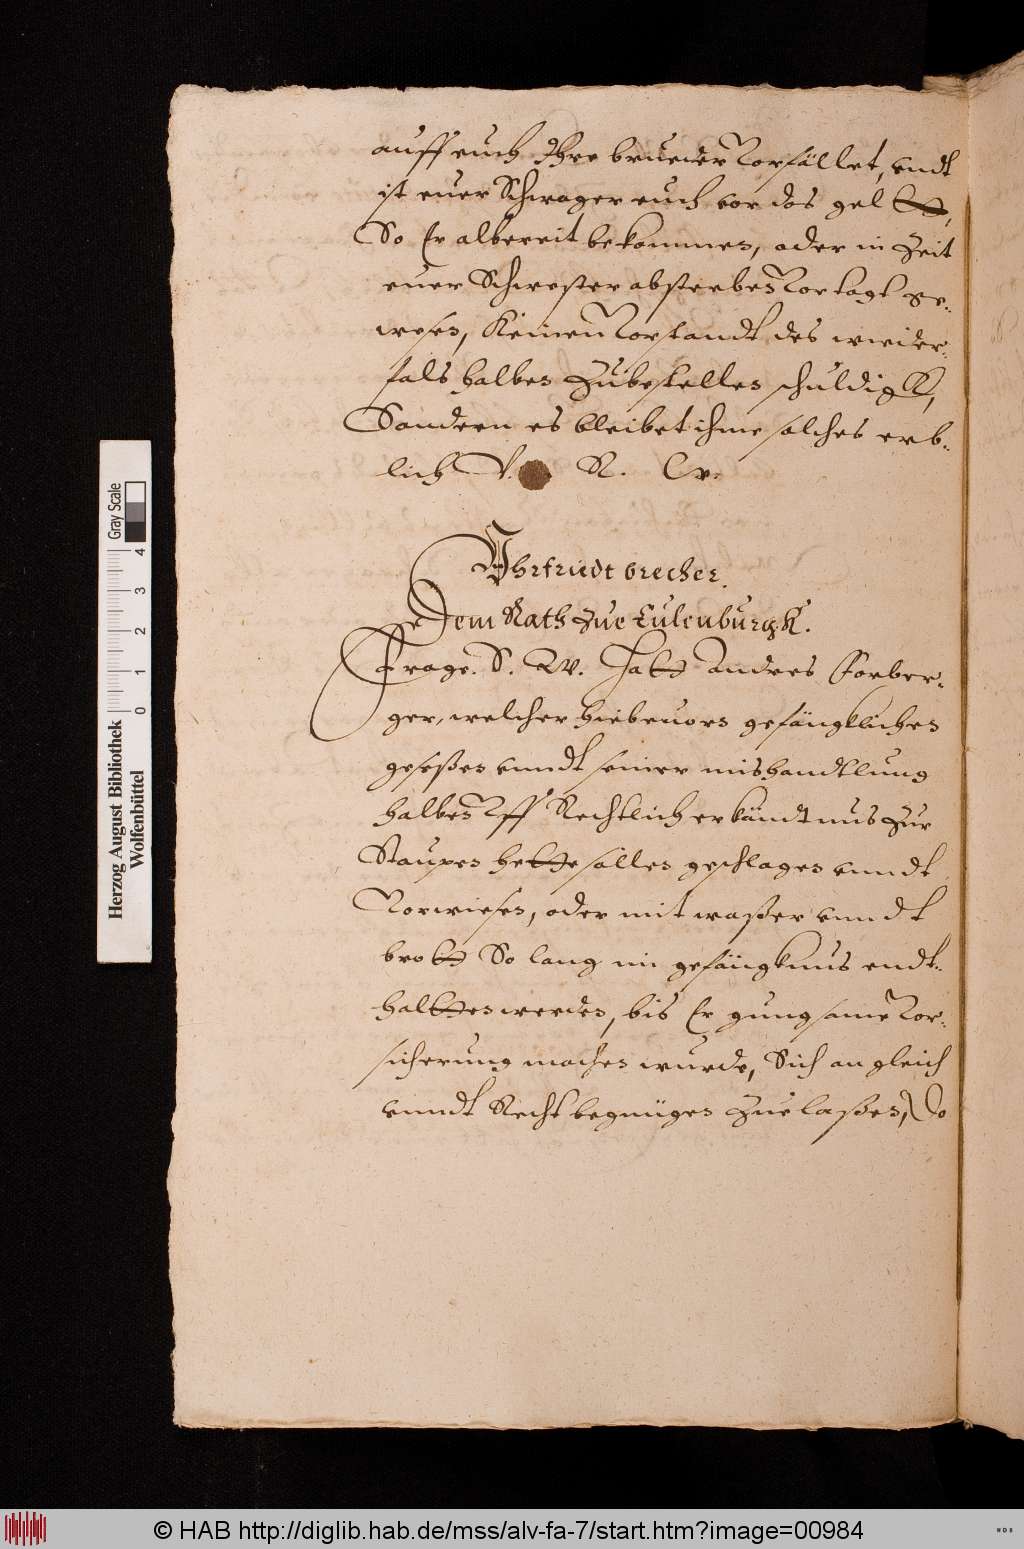 auff euch Ihre brueder Vorfället, vndt
ist euer Schwager euch vor das geltt,
So Er albereit bekommen, oder in Zeit
euer Schwester absterben Vortagt ge-
wesen, Keinen Vorstandt des wieder-
fals halben Zubestellen schuldigk,
Sondern es bleibet ihme solches erb-
lich V. R. W.
Vhrfriedt brecher.
Dem Rath Zue Eulenburgk.
Frage. S. W. Hatt Andres Forber-
ger, welcher hiebeuorn gefängklichen
geseßen vnndt seiner mishandtlung
halben Vff Rechtlich erkändtnus Zur
Staupen hette sollen geschlagen vnndt
Vorwiesen, oder mit waßer vnndt
brott So lang im gefängknus endt-
haltten werden, bis Er gungsame Vor-
sicherung machen wurde, Sich an gleich
vnndt Recht begnügen Zue laßen, So
Herzog August Bibliothek
Wolfenbüttel
0 1 2 3 4
Gray Scale
© HAB http://diglib.hab.de/mss/alv-fa-7/start.htm?image=00984